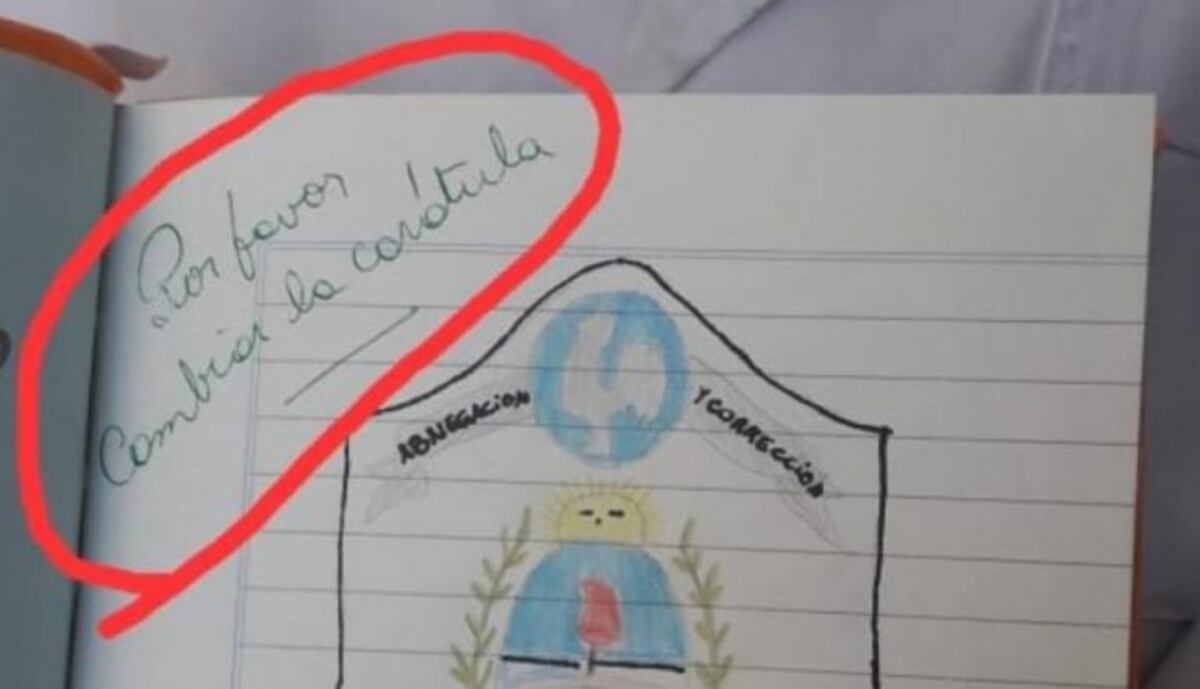 Por favor
Cambiar la carátula
ABNEGACION
Y CORRECCION